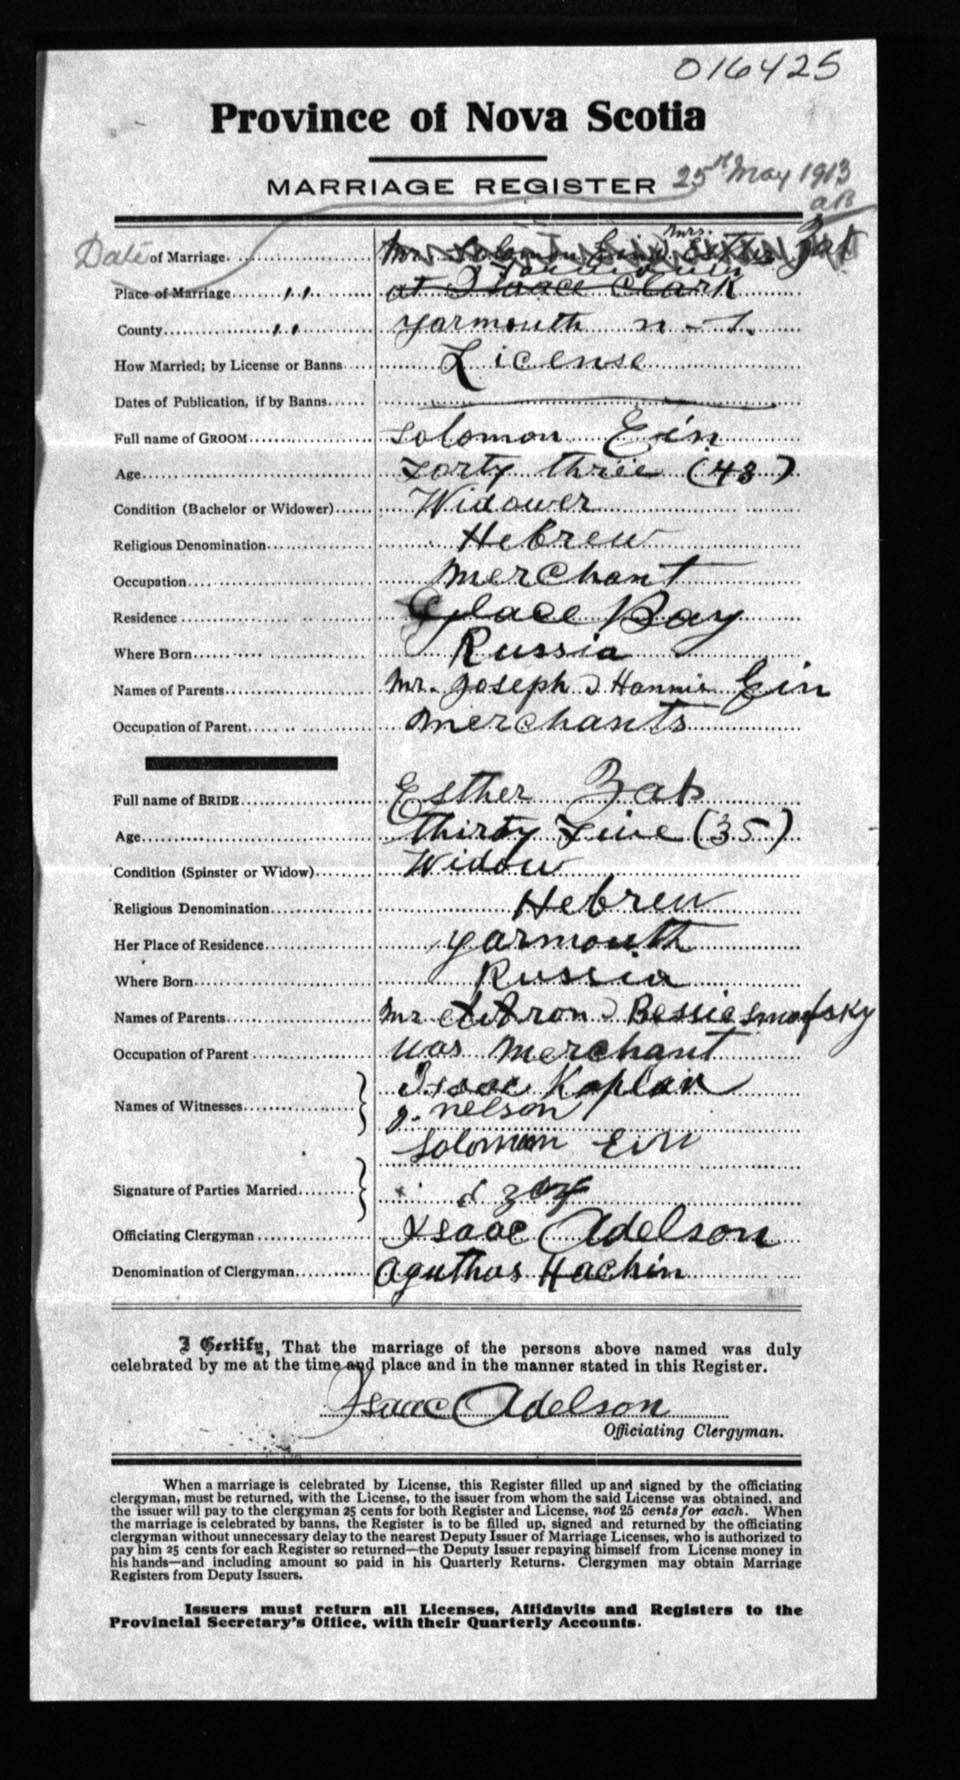 016425
Province of Nova Scotia
MARRIAGE REGISTER 25th May 1913
Date of Marriage Mr. Solomon Ein Mrs. Esther Zab
Place of Marriage " at Isaace Clark
County " Yarmouth n-s.
How Married; by License or Banns License
Dates of Publication, if by Banns
Full name of GROOM Solomon Ein
Age Forty three (43)
Condition (Bachelor or Widower) Widower
Religious Denomination Hebrew
Occupation Merchant
Residence Glace Bay
Where Born Russia
Names of Parents Mr. Joseph & Hannie Ein
Occupation of Parent merchants
Full name of BRIDE Esther Zab
Age thirty Five (35)
Condition (Spinster or Widow) Widow
Religious Denomination Hebrew
Her Place of Residence yarmouth
Where Born Russia
Names of Parents Mr Aron & Bessie
Occupation of Parent was merchant
Isaac Kaplan
Names of Witnesses J. nelson
Solomon Ein
Signature of Parties Married
Officiating Clergyman Isaac Adelson
Denomination of Clergyman Aguthas Hachin
I Certify, That the marriage of the persons above named was duly
celebrated by me at the time and place and in the manner stated in this Register.
Isaac Adelson
Officiating Clergyman.
When a marriage is celebrated by License, this Register filled up and signed by the officiating
clergyman, must be returned, with the License, to the issuer from whom the said License was obtained, and
the issuer will pay to the clergyman 25 cents for both Register and License, not 25 cents for each. When
the marriage is celebrated by banns, the Register is to be filled up, signed and returned by the officiating
clergyman without unnecessary delay to the nearest Deputy Issuer of Marriage Licenses, who is authorized to
pay him 25 cents for each Register so returned—the Deputy Issuer repaying himself from License money in
his hands—and including amount so paid in his Quarterly Returns. Clergymen may obtain Marriage
Registers from Deputy Issuers.
Issuers must return all Licenses, Affidavits and Registers to the
Provincial Secretary's Office, with their Quarterly Accounts.